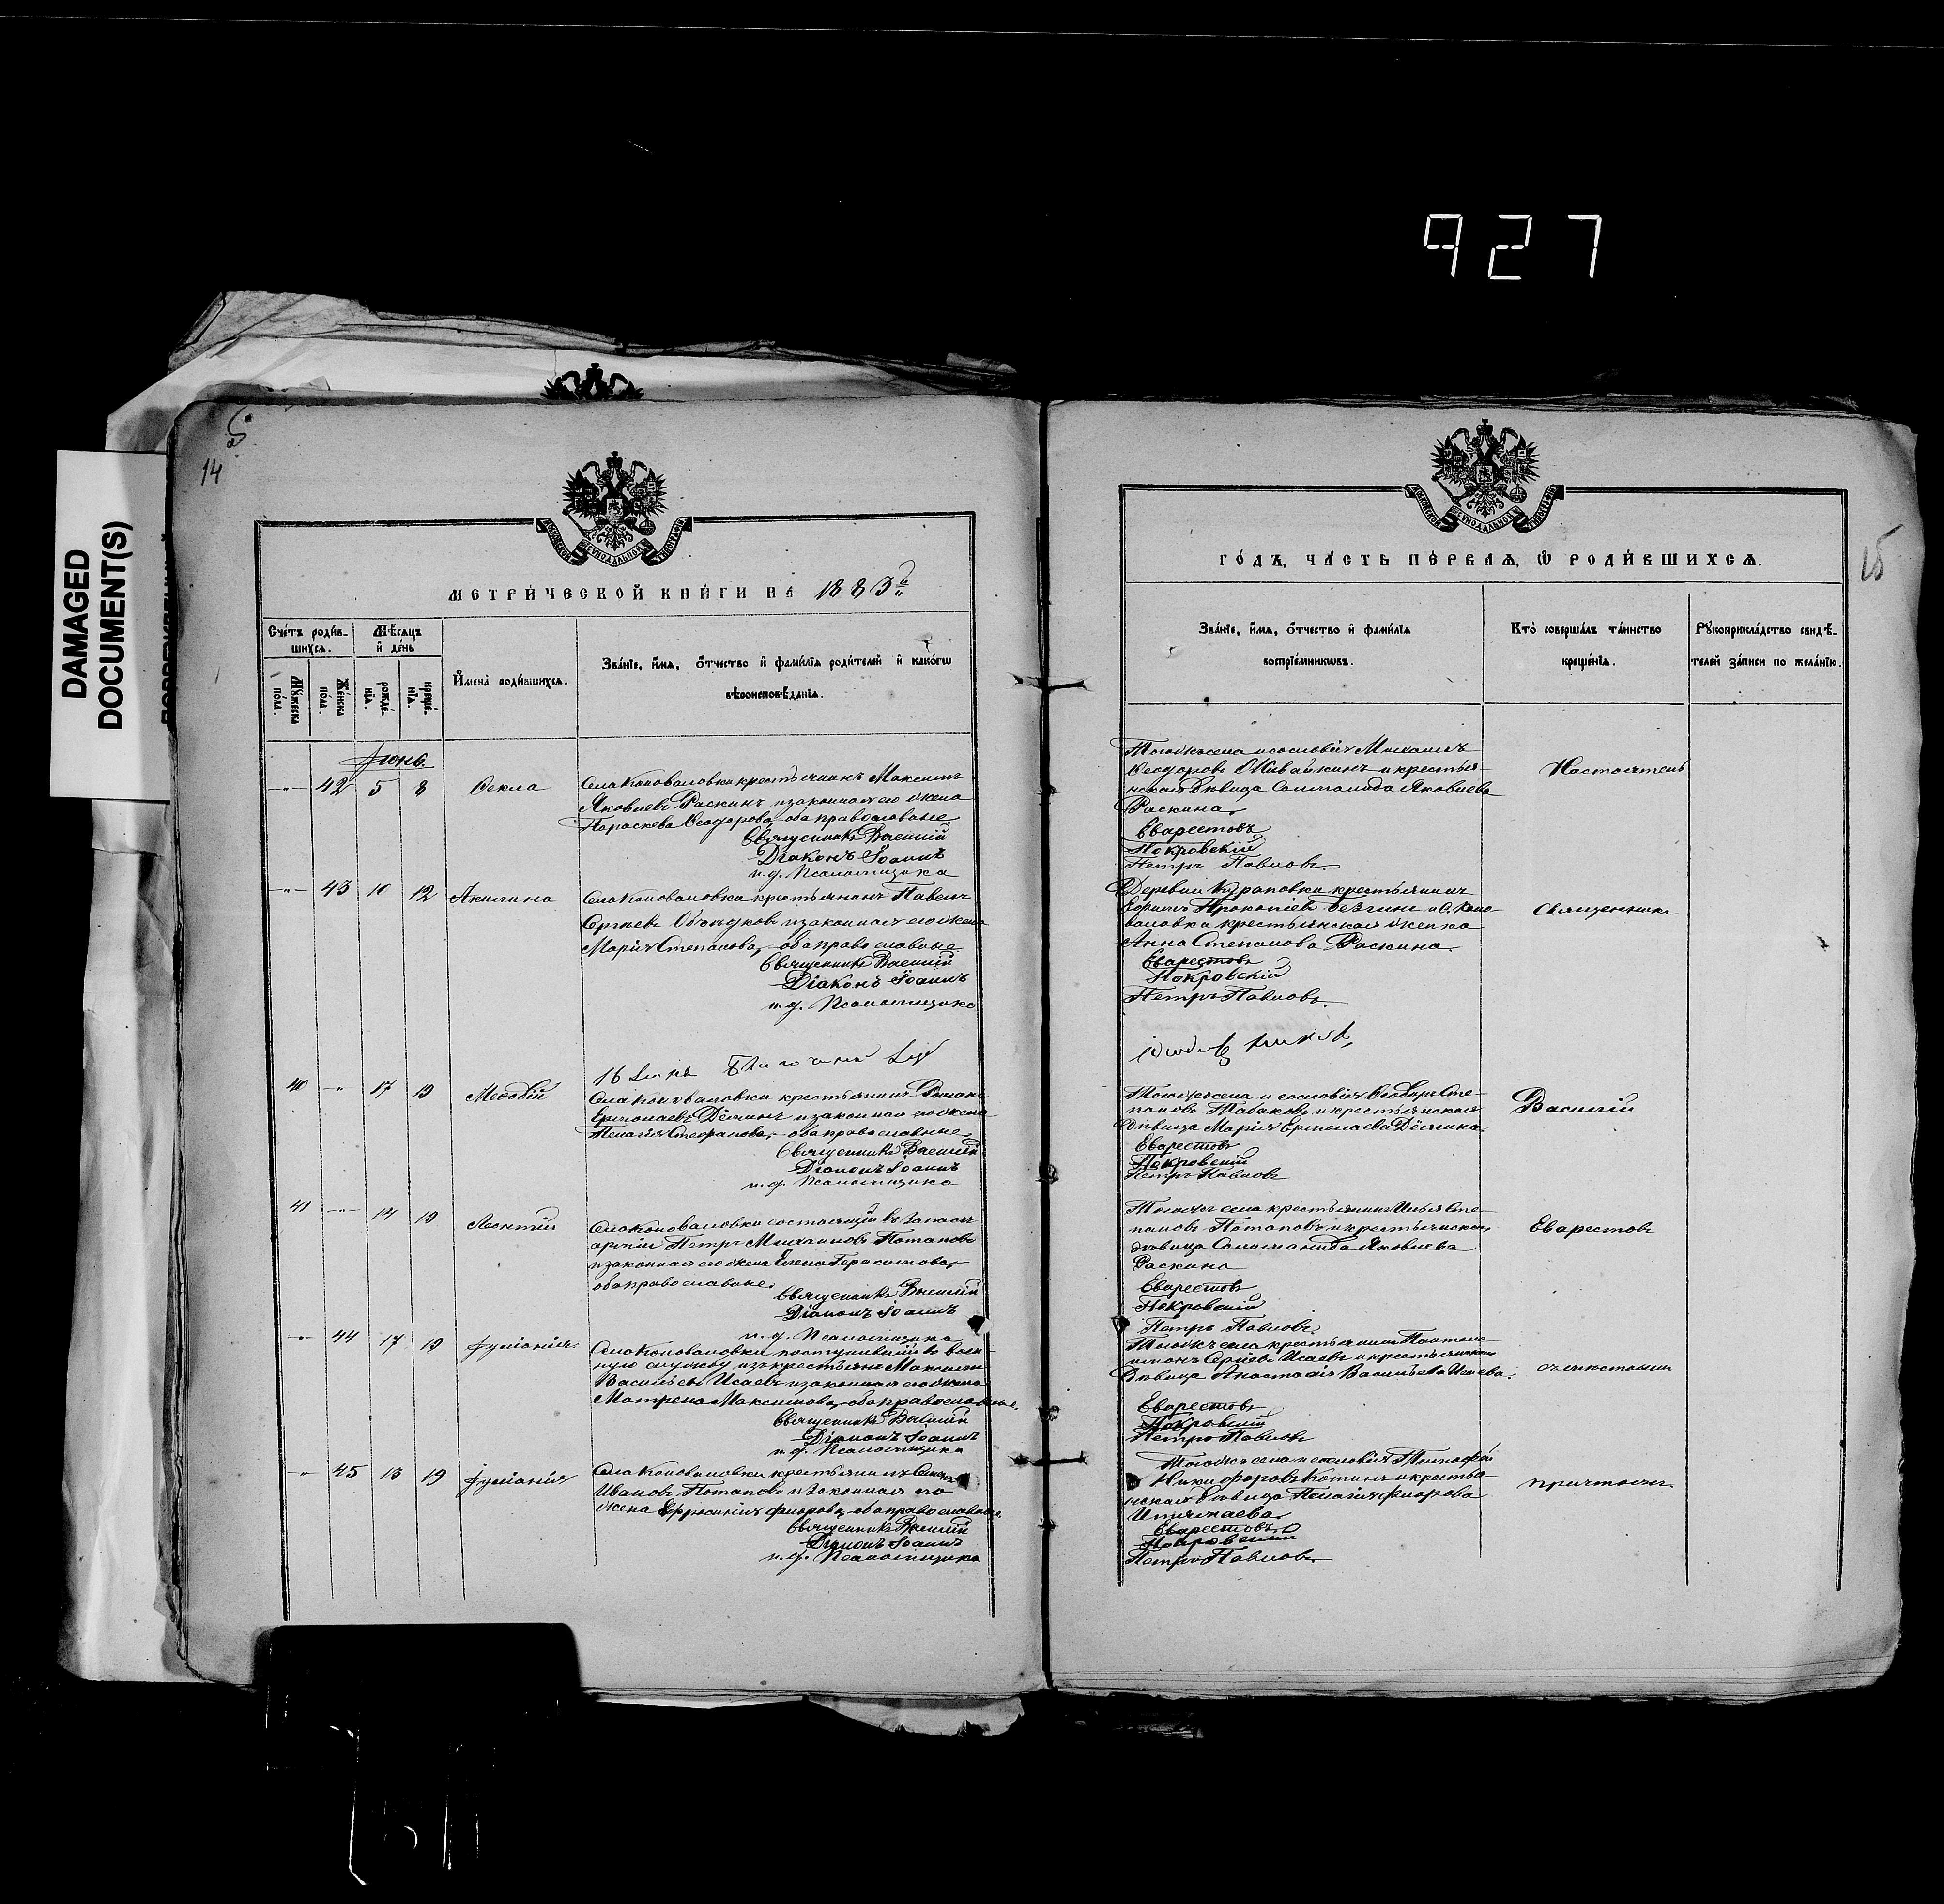 927
DAMAGED
DOCUMENT(S)
14
МЕТРИЧЕСКОЙ КНИГИ НА 1883
Счетъ родив-
шихся.
Мѣсяцъ
и день
Мужеска
пола.
Женска
пола.
рожде-
нія.
креще-
нія.
Имена родившихся.
Званіе, имя, отчество и фамилія родителей и какогѡ
вѣроисповѣданія.
Іюнь
42 5 8 Ѳекла
Села Коповаловки крестьянинъ Максимъ
Яковлевъ Раскинъ и законная его жена
Параскева Ѳеодорова, оба православные
Священникъ Василій
Діаконъ Іоаннъ
и. д. Псаломщика
43 10 12 Акилина
Села Коповаловки крестьянинъ Павелъ
Сергѣевъ и законная его жена
Марія Степанова, оба православные
Священникъ Василій
Діаконъ Іоаннъ
и. д. Псаломщика
40 17 19 Меѳодій
Села Коповаловки крестьянинъ
Ермолаевъ Дёминъ и законная его жена
Пелагія Стефанова, оба православные
Священникъ Василій
Діаконъ Іоаннъ
и. д. Псаломщика
41 14 19 Леонтій
Села Коповаловки состоящій въ запасѣ
арміи Петръ Михаиловъ Потаповъ
и законная его жена Елена Герасимова,
оба православные
Священникъ Василій
Діаконъ Іоаннъ
и. д. Псаломщика
44 17 19 Іуліанія
Села Коповаловки поступившій въ воен-
ную службу изъ крестьянъ Максимъ
Васильевъ Исаевъ и законная его жена
Матрена Максимова, оба православные
Священникъ Василій
Діаконъ Іоаннъ
и. д. Псаломщика
45 13 19 Іуліанія
Села Коповаловки крестьянинъ
Ивановъ Потаповъ и законная его
жена Ефросинія Флорова, оба православные
Священникъ Василій
Діаконъ Іоаннъ
и. д. Псаломщика
15
ГОДЪ, ЧАСТЬ ПЕРВАЯ, Ѡ РОДИВШИХСЯ.
Званіе, имя, отчество и фамилія
воспріемниковъ.
Кто совершалъ таинство
крещенія.
Рукоприкладство свидѣ-
телей записи по желанію.
Того же села и сословія Михаилъ
Ѳеодоровъ и крестья-
нская дѣвица Соломанида Яковлева
Раскина
Еварестовъ
Покровскій
Петръ Павловъ
Настоятель
Деревни крестьянинъ
Прокопіевъ
крестьянская женка
Анна Степанова Раскина
Еварестовъ
Покровскій
Петръ Павловъ
Священникъ
Того же села и сословія Ѳеодоръ Сте-
пановъ Табаковъ и крестьянская
дѣвица Марія Ермолаева Дёмина
Еварестовъ
Покровскій
Петръ Павловъ
Василій
Того же села крестьянинъ Илья Сте-
пановъ Потаповъ и крестьянская
дѣвица Соломанида Яковлева
Раскина
Еварестовъ
Покровскій
Петръ Павловъ
Еварестовъ
Того же села крестьянинъ Пантеле-
имонъ Сергіевъ Исаевъ и крестьянская
дѣвица Анастасія Васильева Исаева
Еварестовъ
Покровскій
Петръ Павловъ
Того же села и сословія Тимофей
Никифоровъ и крестья-
нская дѣвица Пелагія Флорова
Еварестовъ
Покровскій
Петръ Павловъ
причтомъ